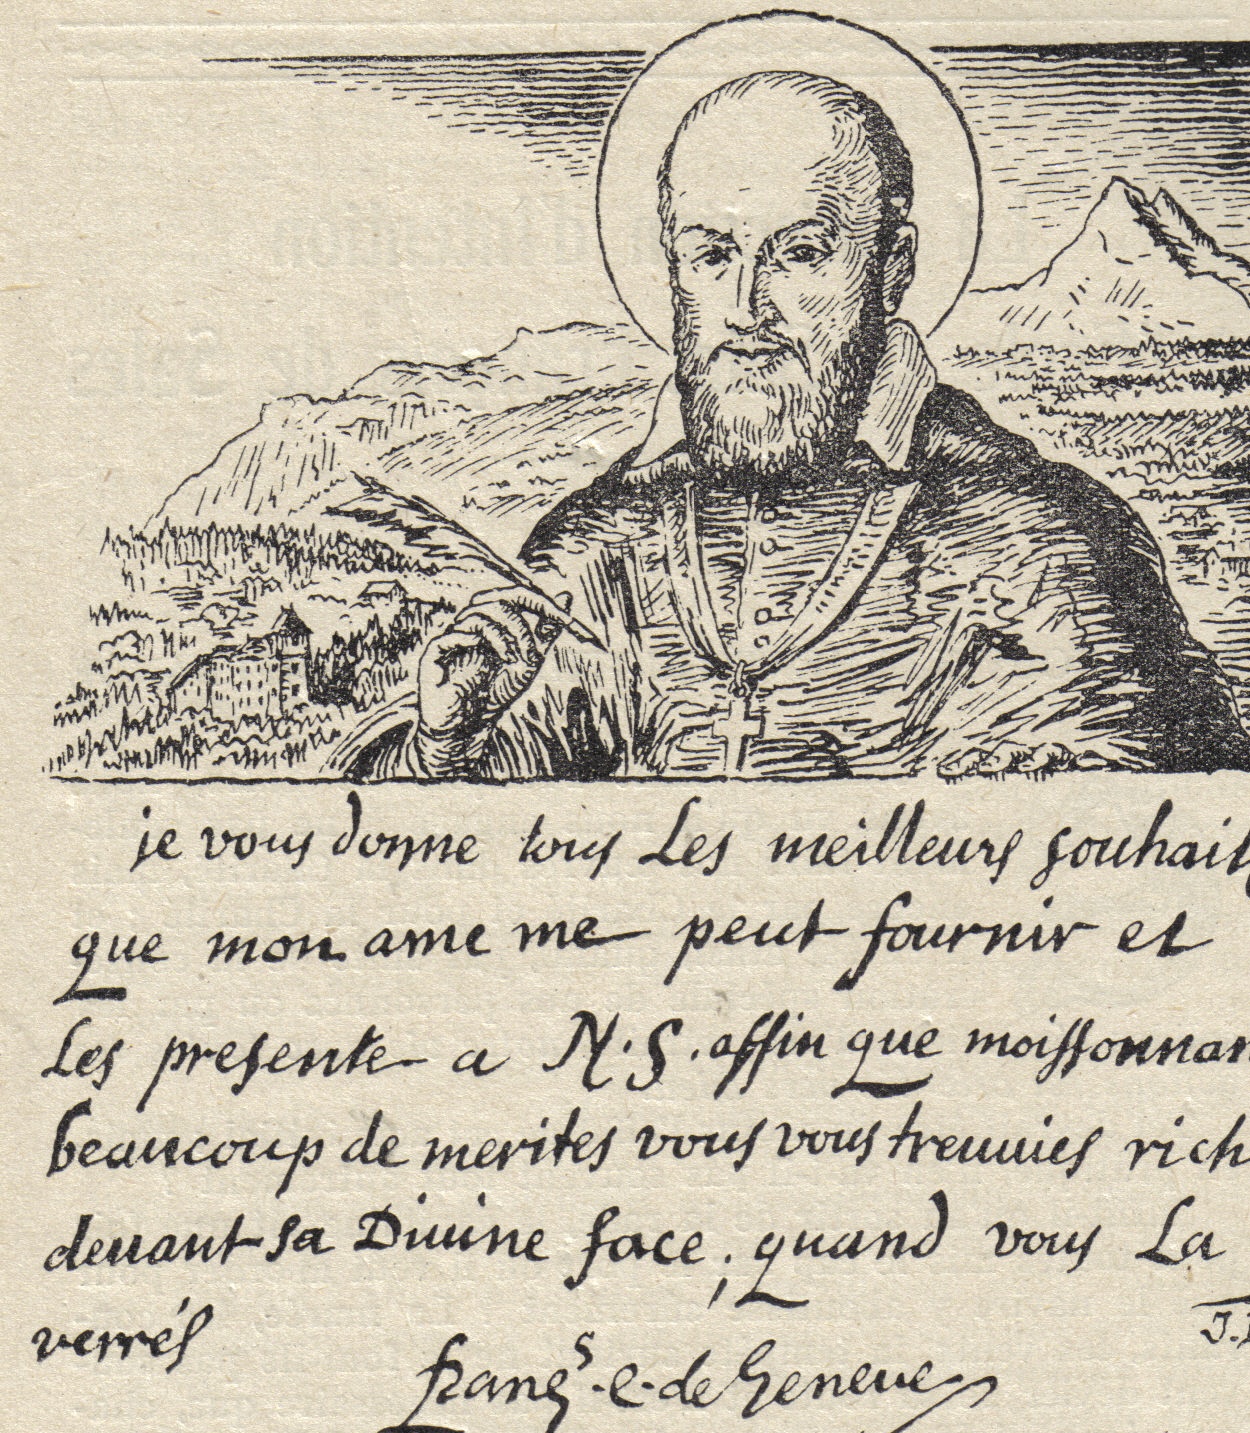 je vous donne tous Les meilleurs souhaits
que mon ame me peut fournir et
Les presente a N. S. affin que moissonnan
beaucoup de merites vous vous treuuies rich
deuant sa Diuine face, quand vous La
verrés
franç^s. e. de Geneve
J.